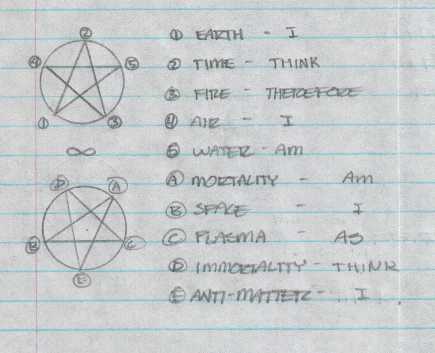 2
4 5
1 3
∞
D A
B C
E
① EARTH - I
② TIME - THINK
③ FIRE - THEREFORE
④ AIR - I
⑤ WATER - AM
Ⓐ MORTALITY - AM
Ⓑ SPACE - I
Ⓒ PLASMA - AS
Ⓓ IMMORTALITY - THINK
Ⓔ ANTI-MATTER - I